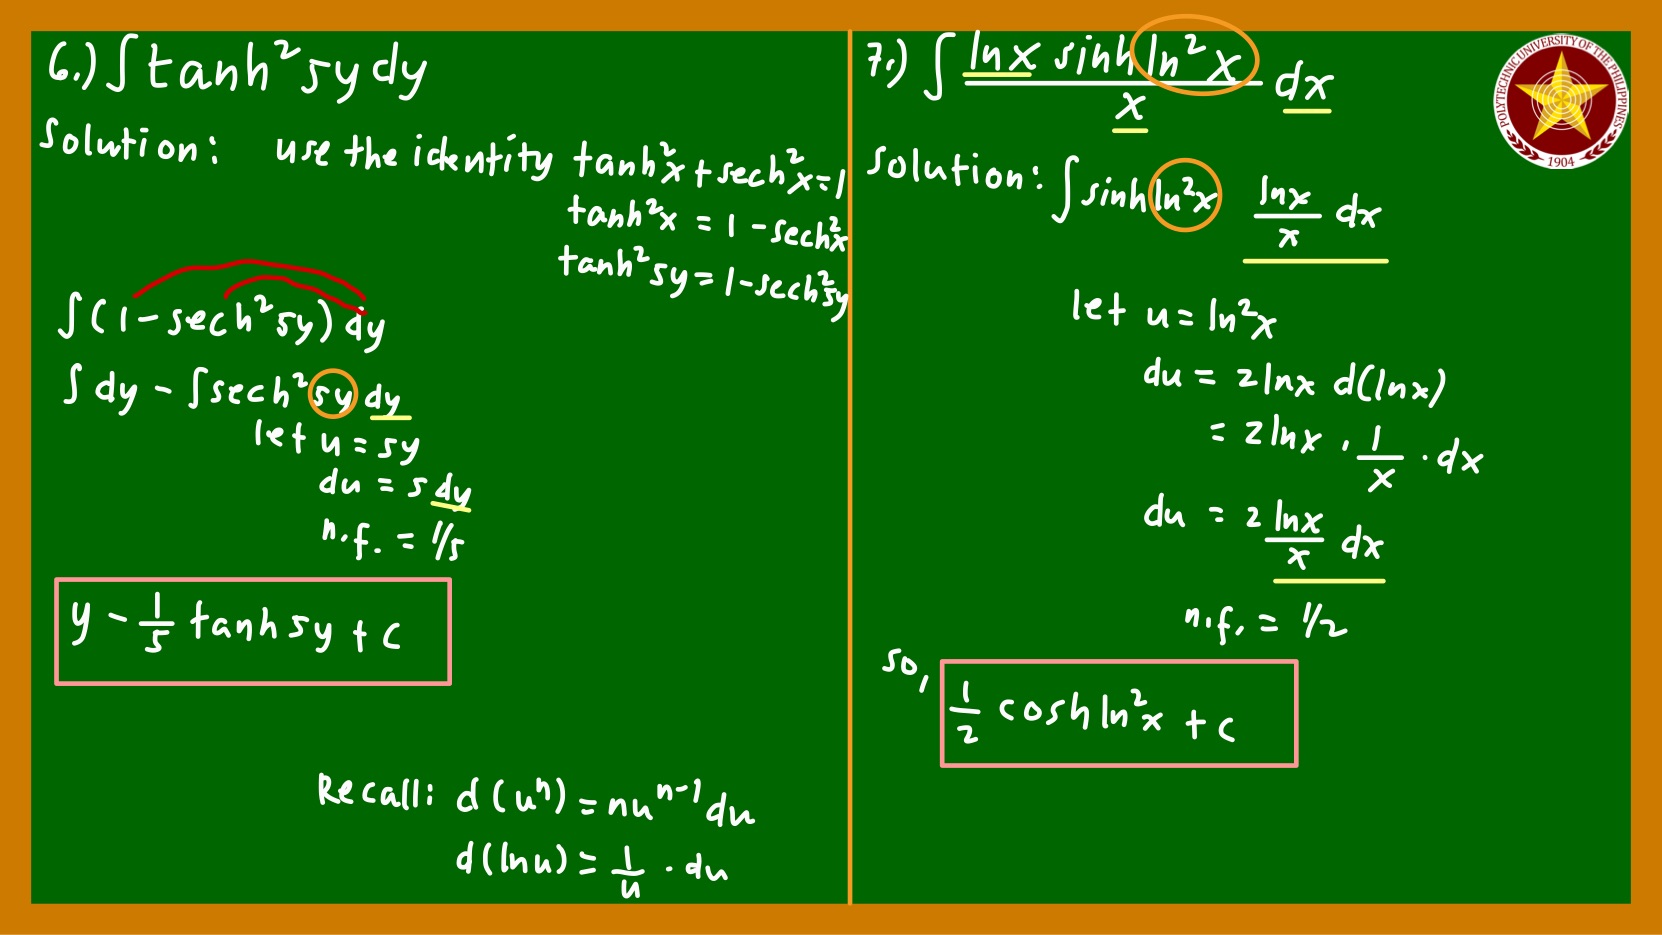 6.) ∫ tanh² 5y dy
Solution: use the identity tanh²x + sech²x = 1
tanh²x = 1 - sech²x
tanh² 5y = 1 - sech² 5y
∫ (1 - sech² 5y) dy
∫ dy - ∫ sech² 5y dy
let u = 5y
du = 5 dy
n.f. = 1/5
y - 1/5 tanh 5y + C
Recall: d(uⁿ) = nuⁿ⁻¹ du
d(ln u) = 1/u · du
7.) ∫ lnx sinh ln²x / x dx
Solution: ∫ sinh ln²x lnx/x dx
let u = ln²x
du = 2 lnx d(lnx)
= 2 lnx · 1/x · dx
du = 2 lnx/x dx
n.f. = 1/2
So, 1/2 cosh ln²x + C
POLYTECHNIC UNIVERSITY OF THE PHILIPPINES
1904